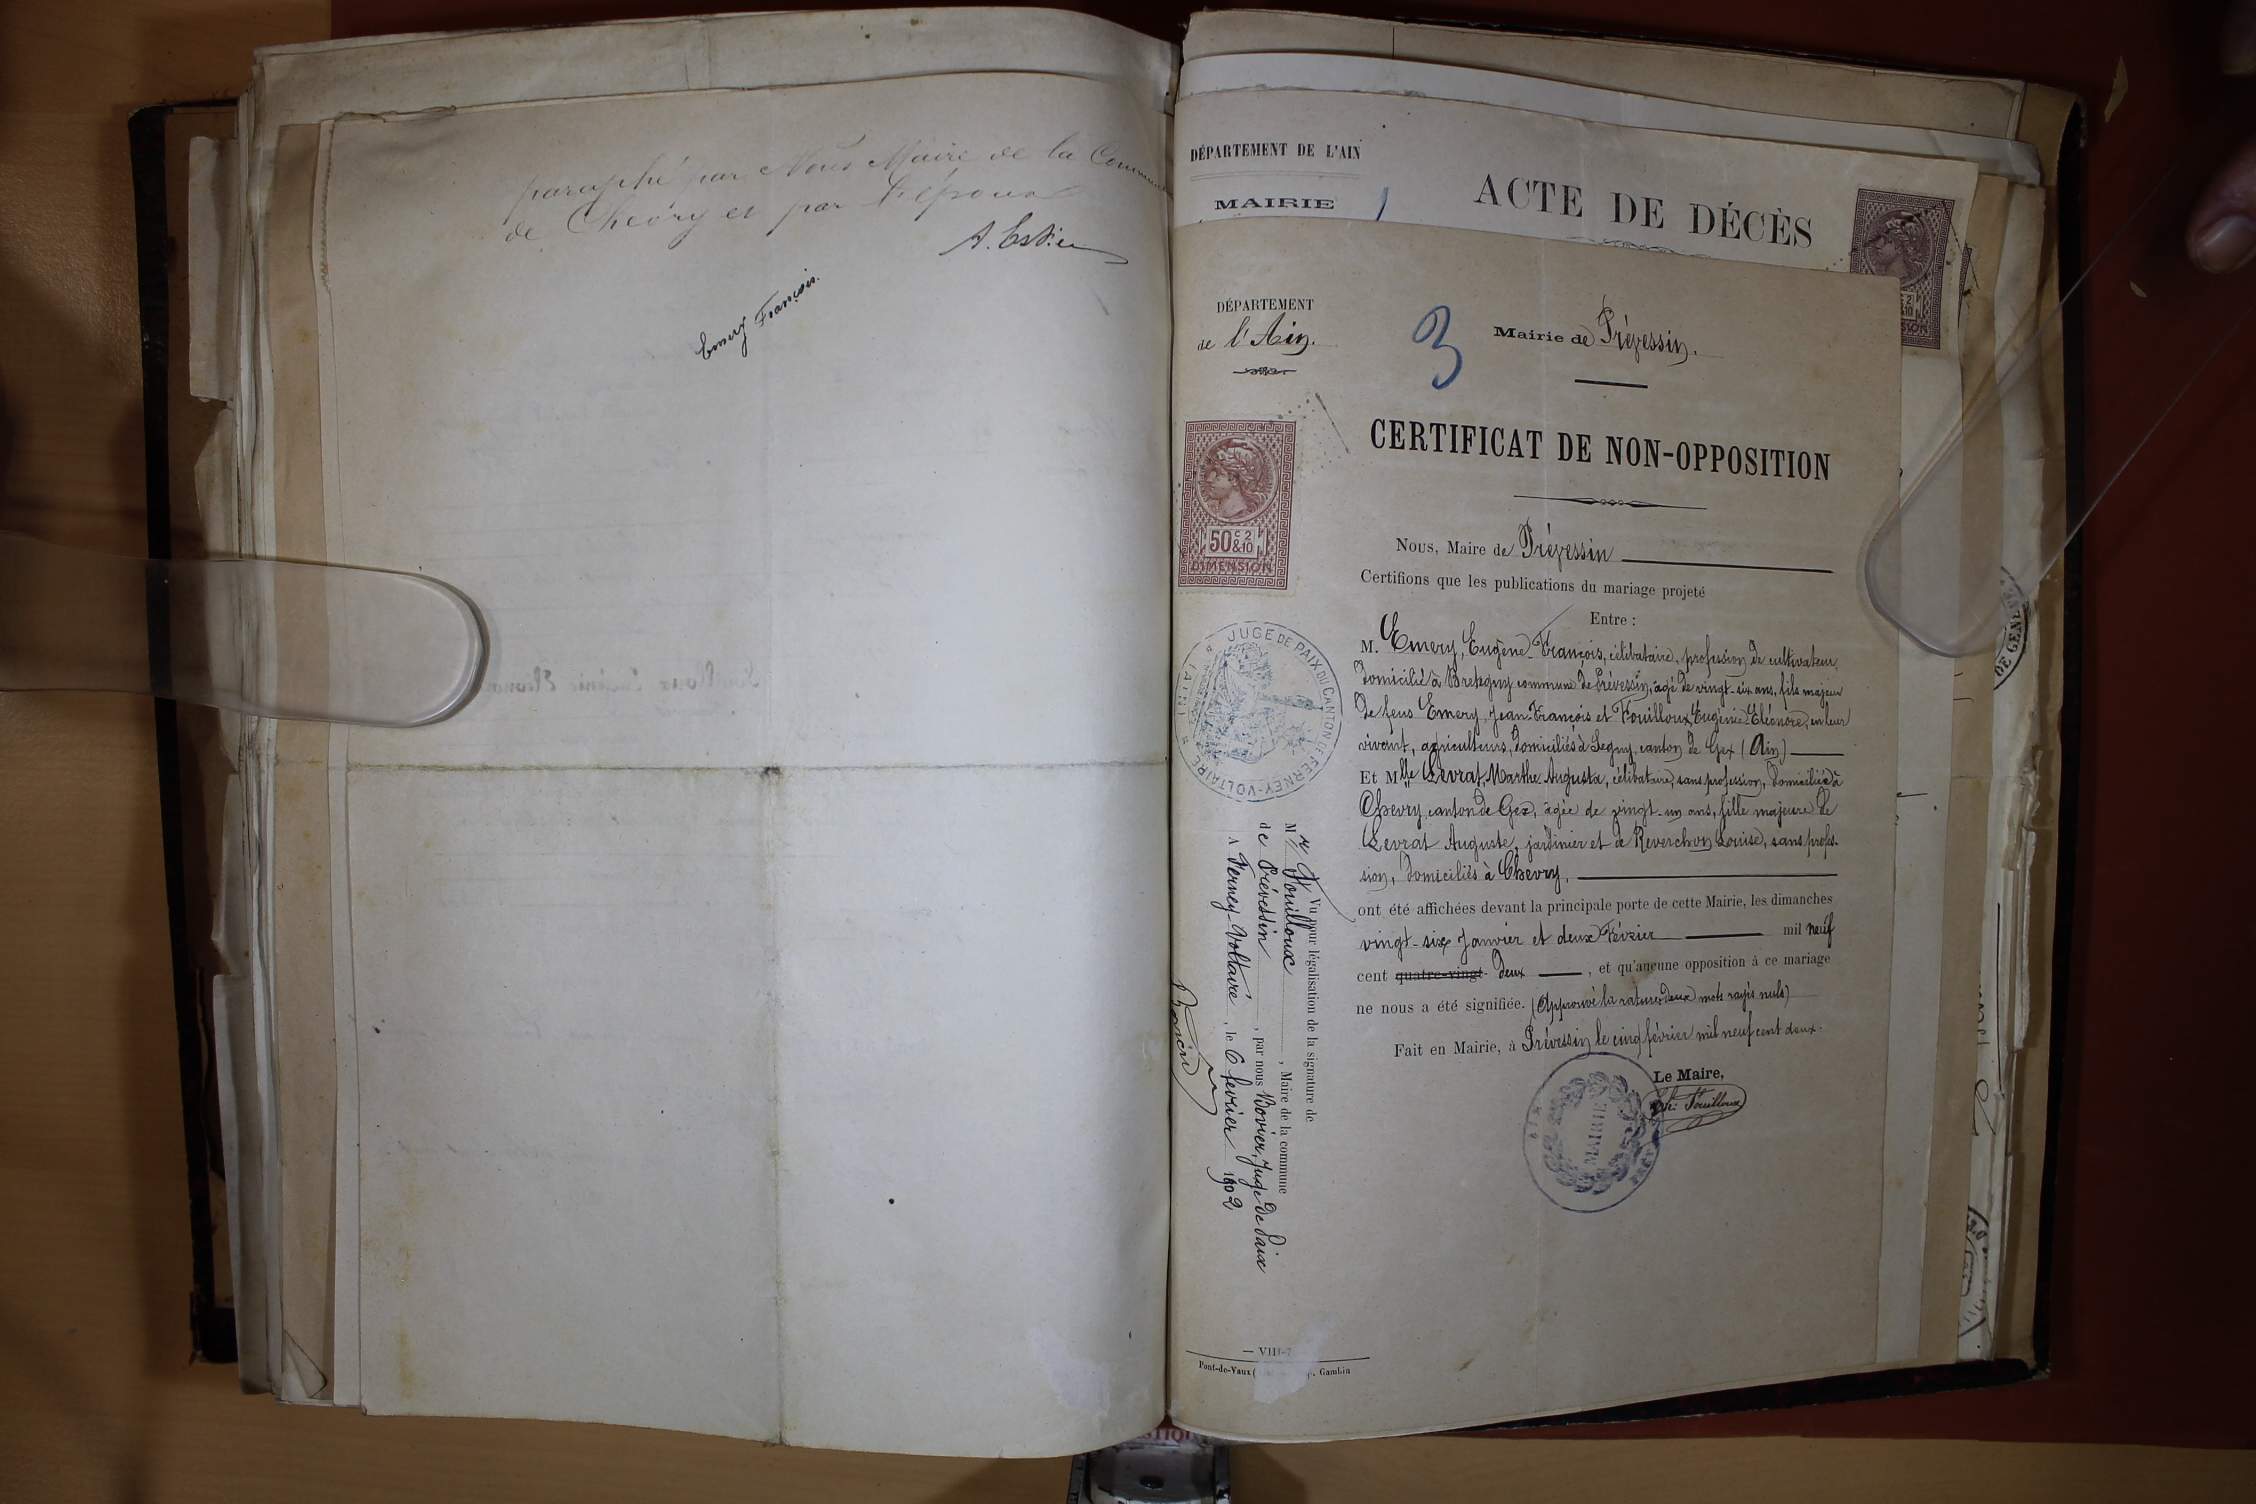 paraphé par Nous Maire de la Commune
de Chevry et par l'épouse
Emery François.
DÉPARTEMENT DE L'AIN
MAIRIE
ACTE DE DÉCÈS
DÉPARTEMENT
de l'Ain.
3
Mairie de Prévessin.
CERTIFICAT DE NON-OPPOSITION
50 c 2 & 10
DIMENSION
Nous, Maire de Prévessin
Certifions que les publications du mariage projeté
Entre :
M. Emery, Eugène-François, célibataire, profession de cultivateur,
domicilié à Bretigny commune de Prévessin, âgé de vingt-six ans, fils majeur
de feus Emery, Jean-François et Fouilloux, Eugénie-Eléonore, en leur
vivant, agriculteurs, domiciliés à Segny, canton de Gex (Ain)
Et Mlle Levrat, Marthe-Augusta, célibataire, sans profession, domiciliée à
Chevry, canton de Gex, âgée de vingt-un ans, fille majeure de
Levrat Auguste, jardinier et de Reverchon Louise, sans profes-
sion, domiciliés à Chevry,
ont été affichées devant la principale porte de cette Mairie, les dimanches
vingt-six Janvier et deux Février mil neuf
cent quatre-vingt- deux , et qu'aucune opposition à ce mariage
ne nous a été signifiée. (Approuvé la rature deux mots rayés nuls)
Fait en Mairie, à Prévessin le cinq février mil neuf cent deux.
Le Maire,
Fouilloux
MAIRIE
AIN
JUGE DE PAIX DU CANTON DE FERNEY-VOLTAIRE
(AIN)
Vu pour légalisation de la signature de
Mr Fouilloux , Maire de la commune
de Prévessin , par nous Bovier, Juge de Paix
A Ferney-Voltaire , le 6 fevrier 1902
— VIII-7
Pont-de-Vaux ( . Gambin
DE GEN